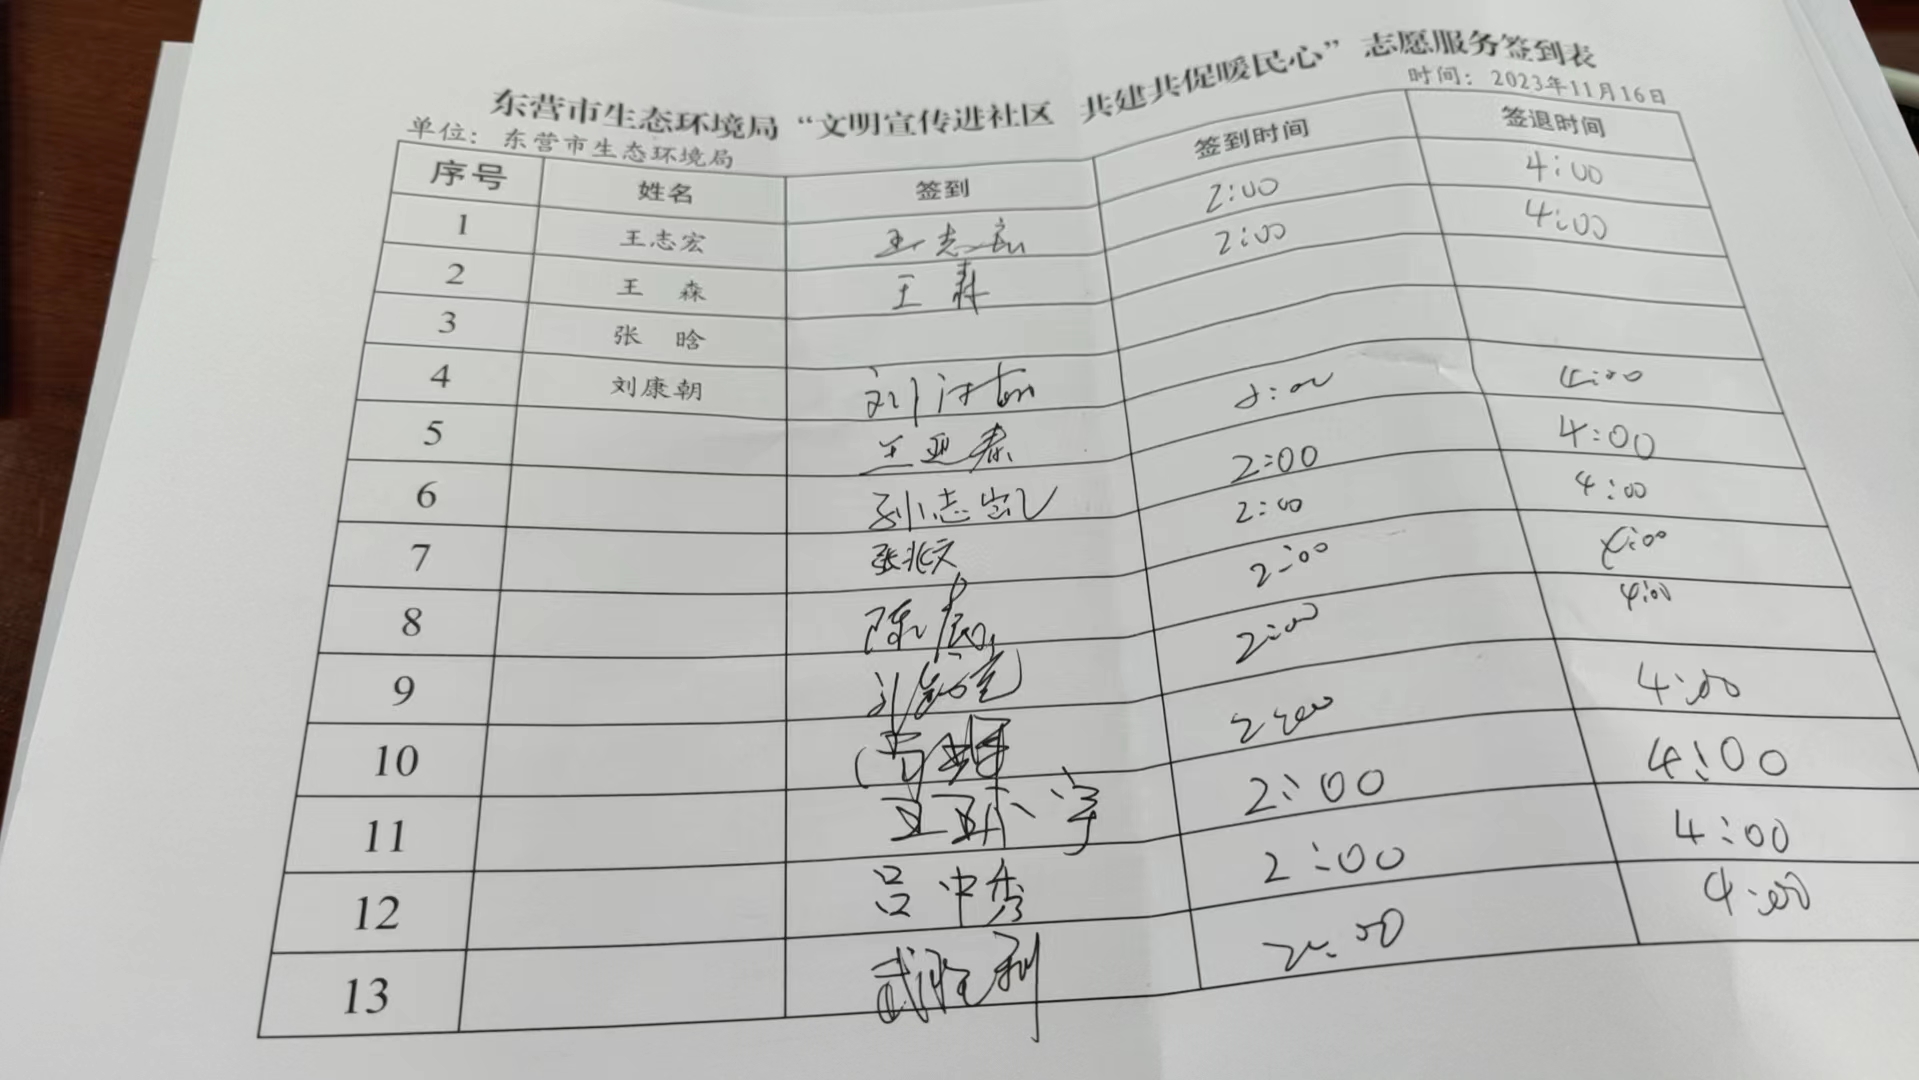 东营市生态环境局“文明宣传进社区 共建共促暖民心”志愿服务签到表
单位：东营市生态环境局 时间：2023年11月16日
序号 姓名 签到 签到时间 签退时间
1 王志宏 王志宏 2:00 4:00
2 王 森 王森 2:00 4:00
3 张 晗
4 刘康朝 4:00
5 王亚泰 2:00 4:00
6 孙志凯 2:00 4:00
7 张兆文 2:00 4:00
8 2:00 4:00
9 4:00
10 2:00 4:00
11 2:00 4:00
12 吕中秀 2:00 4:00
13 武胜利